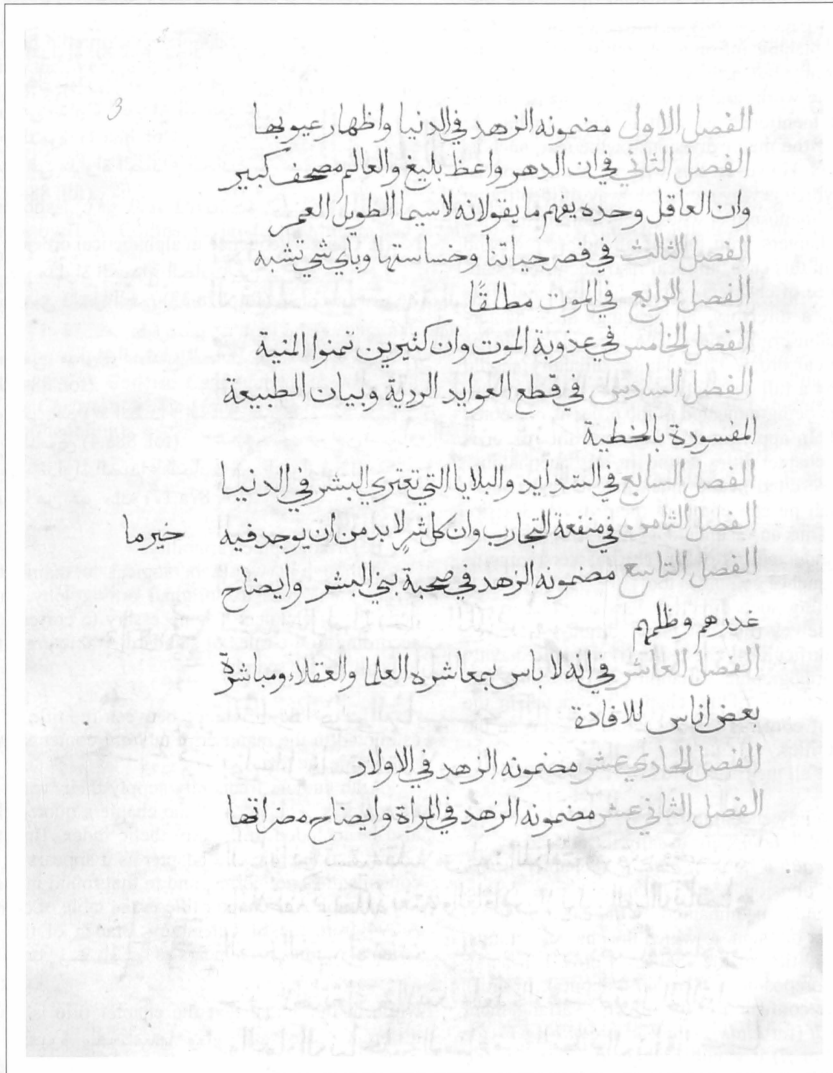 3
الفصل الاول مضمونه الزهد في الدنيا واظهار عيوبها
الفصل الثاني في ان الدهر واعظ بليغ والعالم مصحف كبير
وان العاقل وحده يفهم ما يقولانه لاسما الطويل العمر
الفصل الثالث في قصر حياتنا وخساستها وباي شي تشبه
الفصل الرابع في الموت مطلقًا
الفصل الخامس في عدوبة الموت وان كثيرين تمنوا المنية
الفصل السادس في قطع العوايد الردية وبيان الطبيعة
المفسودة بالخطية
الفصل السابع في الشدايد والبلايا التي تعتري البشر في الدنيا
الفصل الثامن في منفعة التجارب وان كل شر لا بد من ان يوجد فيه خير ما
الفصل التاسع مضمونه الزهد في صحبة بني البشر وايضاح
غدرهم وظلمهم
الفصل العاشر في انه لا باس بمعاشرة العلما والعقلاء ومباشرة
بعض اناس للافادة
الفصل الحادي عشر مضمونه الزهد في الاولاد
الفصل الثاني عشر مضمونه الزهد في المراة وايضاح مضراتها